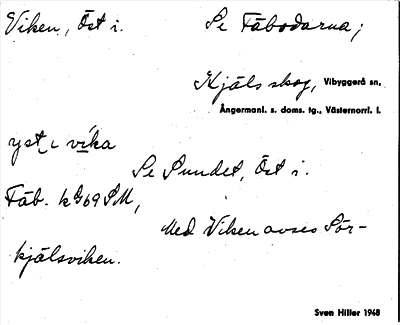 Viken, Öst i. Se Fäbodarna;
Kjäls skog, Vibyggerå sn,
Ångermanl. s. doms. tg., Västernorrl. l.
yst i vika
Se Sundet, Öst i.
Fäb. k G69 SM,
Med Viken avses Sör-
kjälsviken.
Sven Hiller 1948